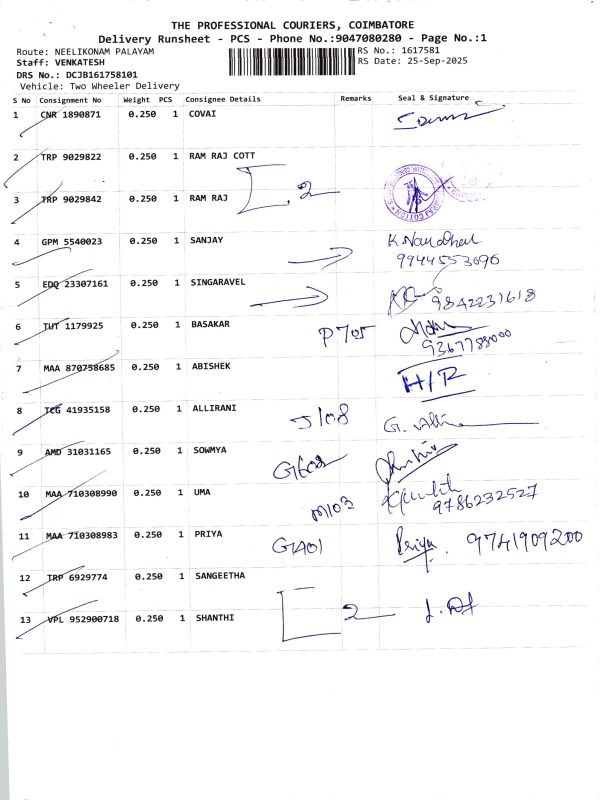 THE PROFESSIONAL COURIERS, COIMBATORE
Delivery Runsheet - PCS - Phone No.:9047080280 - Page No.:1
Route: NEELIKONAM PALAYAM RS No.: 1617581
Staff: VENKATESH RS Date: 25-Sep-2025
DRS No.: DCJB161758101
Vehicle: Two Wheeler Delivery
S No Consignment No Weight PCS Consignee Details Remarks Seal & Signature
1 CNR 1890871 0.250 1 COVAI
2 TRP 9029822 0.250 1 RAM RAJ COTT
3 TRP 9029842 0.250 1 RAM RAJ 2
4 GPM 5540023 0.250 1 SANJAY
9944553696
5 EDQ 23307161 0.250 1 SINGARAVEL 9842231618
6 TUT 1179925 0.250 1 BASAKAR P705
9367788000
7 MAA 870758685 0.250 1 ABISHEK H/R
8 TCG 41935158 0.250 1 ALLIRANI J108
9 AMD 31031165 0.250 1 SOWMYA
10 MAA 710308990 0.250 1 UMA M103 9786232527
11 MAA 710308983 0.250 1 PRIYA GA01 Priya. 9741909200
12 TRP 6929774 0.250 1 SANGEETHA
13 VPL 952900718 0.250 1 SHANTHI 2